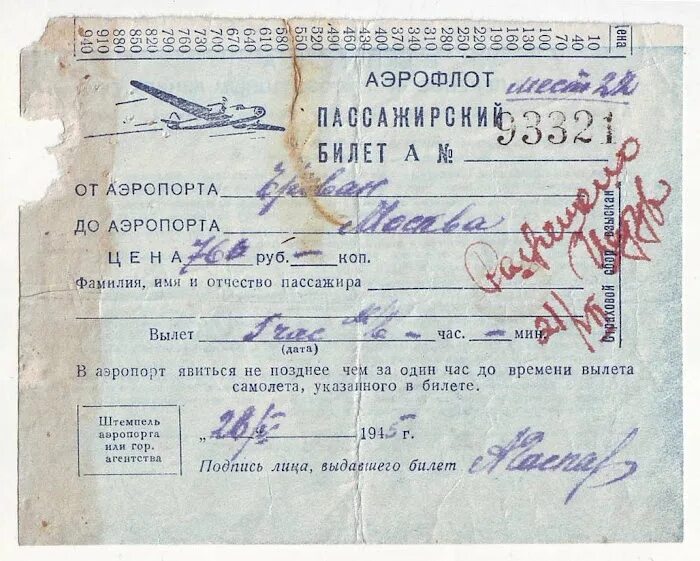 940 910 880 850 820 790 760 730 700 670 640 610 580 550 520 490 460 430 400 370 340 310 280 250 220 190 160 130 100 70 40 10 Цена
АЭРОФЛОТ мест 22
ПАССАЖИРСКИЙ
БИЛЕТ А № 93321
ОТ АЭРОПОРТА Ереван
ДО АЭРОПОРТА Москва
ЦЕНА 760 руб. — коп.
Фамилия, имя и отчество пассажира
Вылет час. — мин.
(дата)
В аэропорт явиться не позднее чем за один час до времени вылета
самолета, указанного в билете.
Штемпель
аэропорта
или гор.
агентства
„ 1945 г.
Подпись лица, выдавшего билет
Страховой сбор взыскан
Разрешено